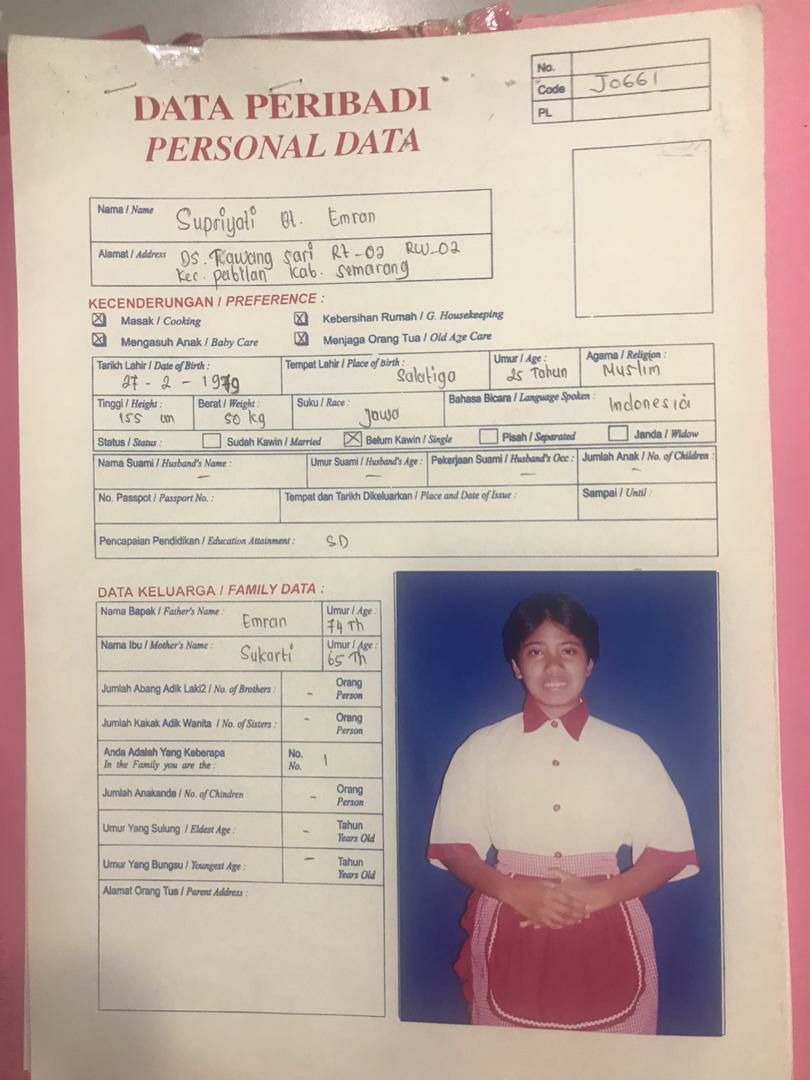 DATA PERIBADI
PERSONAL DATA
No.
Code J0661
PL
Nama / Name Supriyati Bt. Emran
Alamat / Address DS. Rawang sari Rt-02 RW-02
Kec. pabtlan kab. semarang
KECENDERUNGAN / PREFERENCE :
Masak / Cooking
Kebersihan Rumah / G. Housekeeping
Mengasuh Anak / Baby Care
Menjaga Orang Tua / Old Age Care
Tarikh Lahir / Date of Birth : 27 - 2 - 1979
Tempat Lahir / Place of Birth : Salatiga
Umur / Age : 25 Tahun
Agama / Religion : Muslim
Tinggi / Height : 155 cm
Berat / Weight : 50 kg
Suku / Race : Jawa
Bahasa Bicara / Language Spoken : Indonesia
Status / Status : Sudah Kawin / Married Belum Kawin / Single Pisah / Separated Janda / Widow
Nama Suami / Husband's Name : -
Umur Suami / Husband's Age : -
Pekerjaan Suami / Husband's Occ : -
Jumlah Anak / No. of Children : -
No. Passpot / Passport No. :
Tempat dan Tarikh Dikeluarkan / Place and Date of Issue :
Sampai / Until :
Pencapaian Pendidikan / Education Attainment : SD
DATA KELUARGA / FAMILY DATA :
Nama Bapak / Father's Name : Emran
Umur / Age : 74 Th
Nama Ibu / Mother's Name : Sukarti
Umur / Age : 65 Th
Jumlah Abang Adik Laki2 / No. of Brothers : - Orang
Person
Jumlah Kakak Adik Wanita / No. of Sisters : - Orang
Person
Anda Adalah Yang Keberapa No. 1
In the Family you are the : No.
Jumlah Anakanda / No. of Chindren - Orang
Person
Umur Yang Sulung / Eldest Age : - Tahun
Years Old
Umur Yang Bungsu / Youngest Age : - Tahun
Years Old
Alamat Orang Tua / Parent Address :